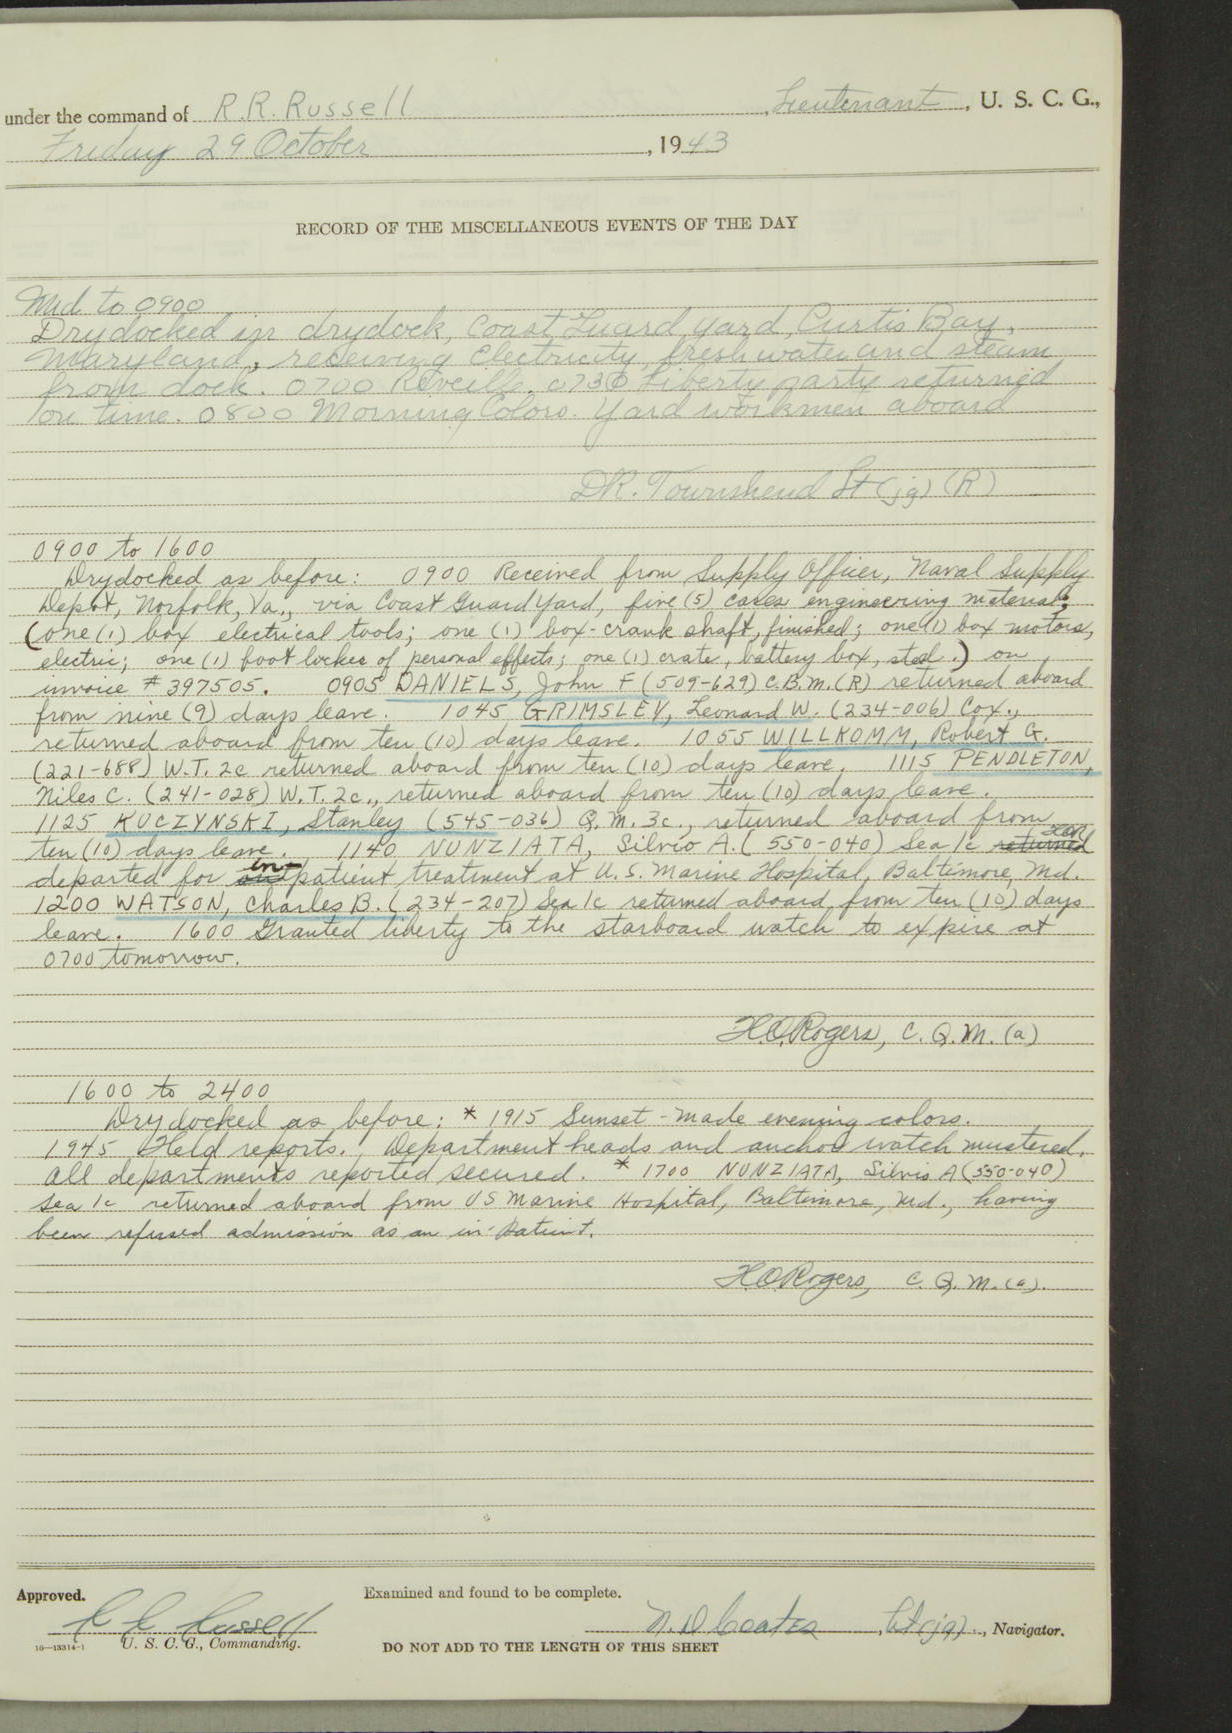 under the command of R.R. Russell , Lieutenant , U. S. C. G.,
Friday 29 October , 1943
RECORD OF THE MISCELLANEOUS EVENTS OF THE DAY
Mid to 0900
Drydocked in drydock, Coast Guard Yard, Curtis Bay,
Maryland, receiving electricity, fresh water and steam
from dock. 0700 Reveille. 0730 Liberty party returned
on time. 0800 Morning Colors. Yard workmen aboard
DR. Townshend Lt (jg) (R)
0900 to 1600
Drydocked as before: 0900 Received from Supply Officer, Naval Supply
Depot, Norfolk, Va., via Coast Guard Yard, five (5) cases engineering material;
(one (1) box electrical tools; one (1) box-crank shaft, finished; one (1) box motors,
electric; one (1) foot locker of personal effects; one (1) crate, battery box, steel.) on
invoice # 397505. 0905 DANIELS, John F (509-629) C.B.M. (R) returned aboard
from nine (9) days leave. 1045 GRIMSLEY, Leonard W. (234-006) Cox.,
returned aboard from ten (10) days leave. 1055 WILLKOMM, Robert G.
(221-688) W.T. 2c returned aboard from ten (10) days leave. 1115 PENDLETON,
Niles C. (241-028) W.T. 2c., returned aboard from ten (10) days leave.
1125 KUCZYNSKI, Stanley (545-036) Q.M. 3c., returned aboard from
ten (10) days leave. 1140 NUNZIATA, Silvio A. (550-040) Sea 1c returned
departed for in-patient treatment at U. S. Marine Hospital, Baltimore, Md.
1200 WATSON, Charles B. (234-207) Sea 1c returned aboard from ten (10) days
leave. 1600 Granted liberty to the starboard watch to expire at
0700 tomorrow.
H.O. Rogers, C. Q. M. (a)
1600 to 2400
Drydocked as before: * 1915 Sunset - made evening colors.
1945 Held reports. Department heads and anchor watch mustered.
All departments reported secured. * 1700 NUNZIATA, Silvio A (550-040)
Sea 1c returned aboard from US Marine Hospital, Baltimore, Md., having
been refused admission as an in-patient.
H.O. Rogers, C. Q. M. (a).
Approved. Examined and found to be complete.
R R Russell N. D Coates , Lt (jg) , Navigator.
16—13314-1 U. S. C. G., Commanding. DO NOT ADD TO THE LENGTH OF THIS SHEET